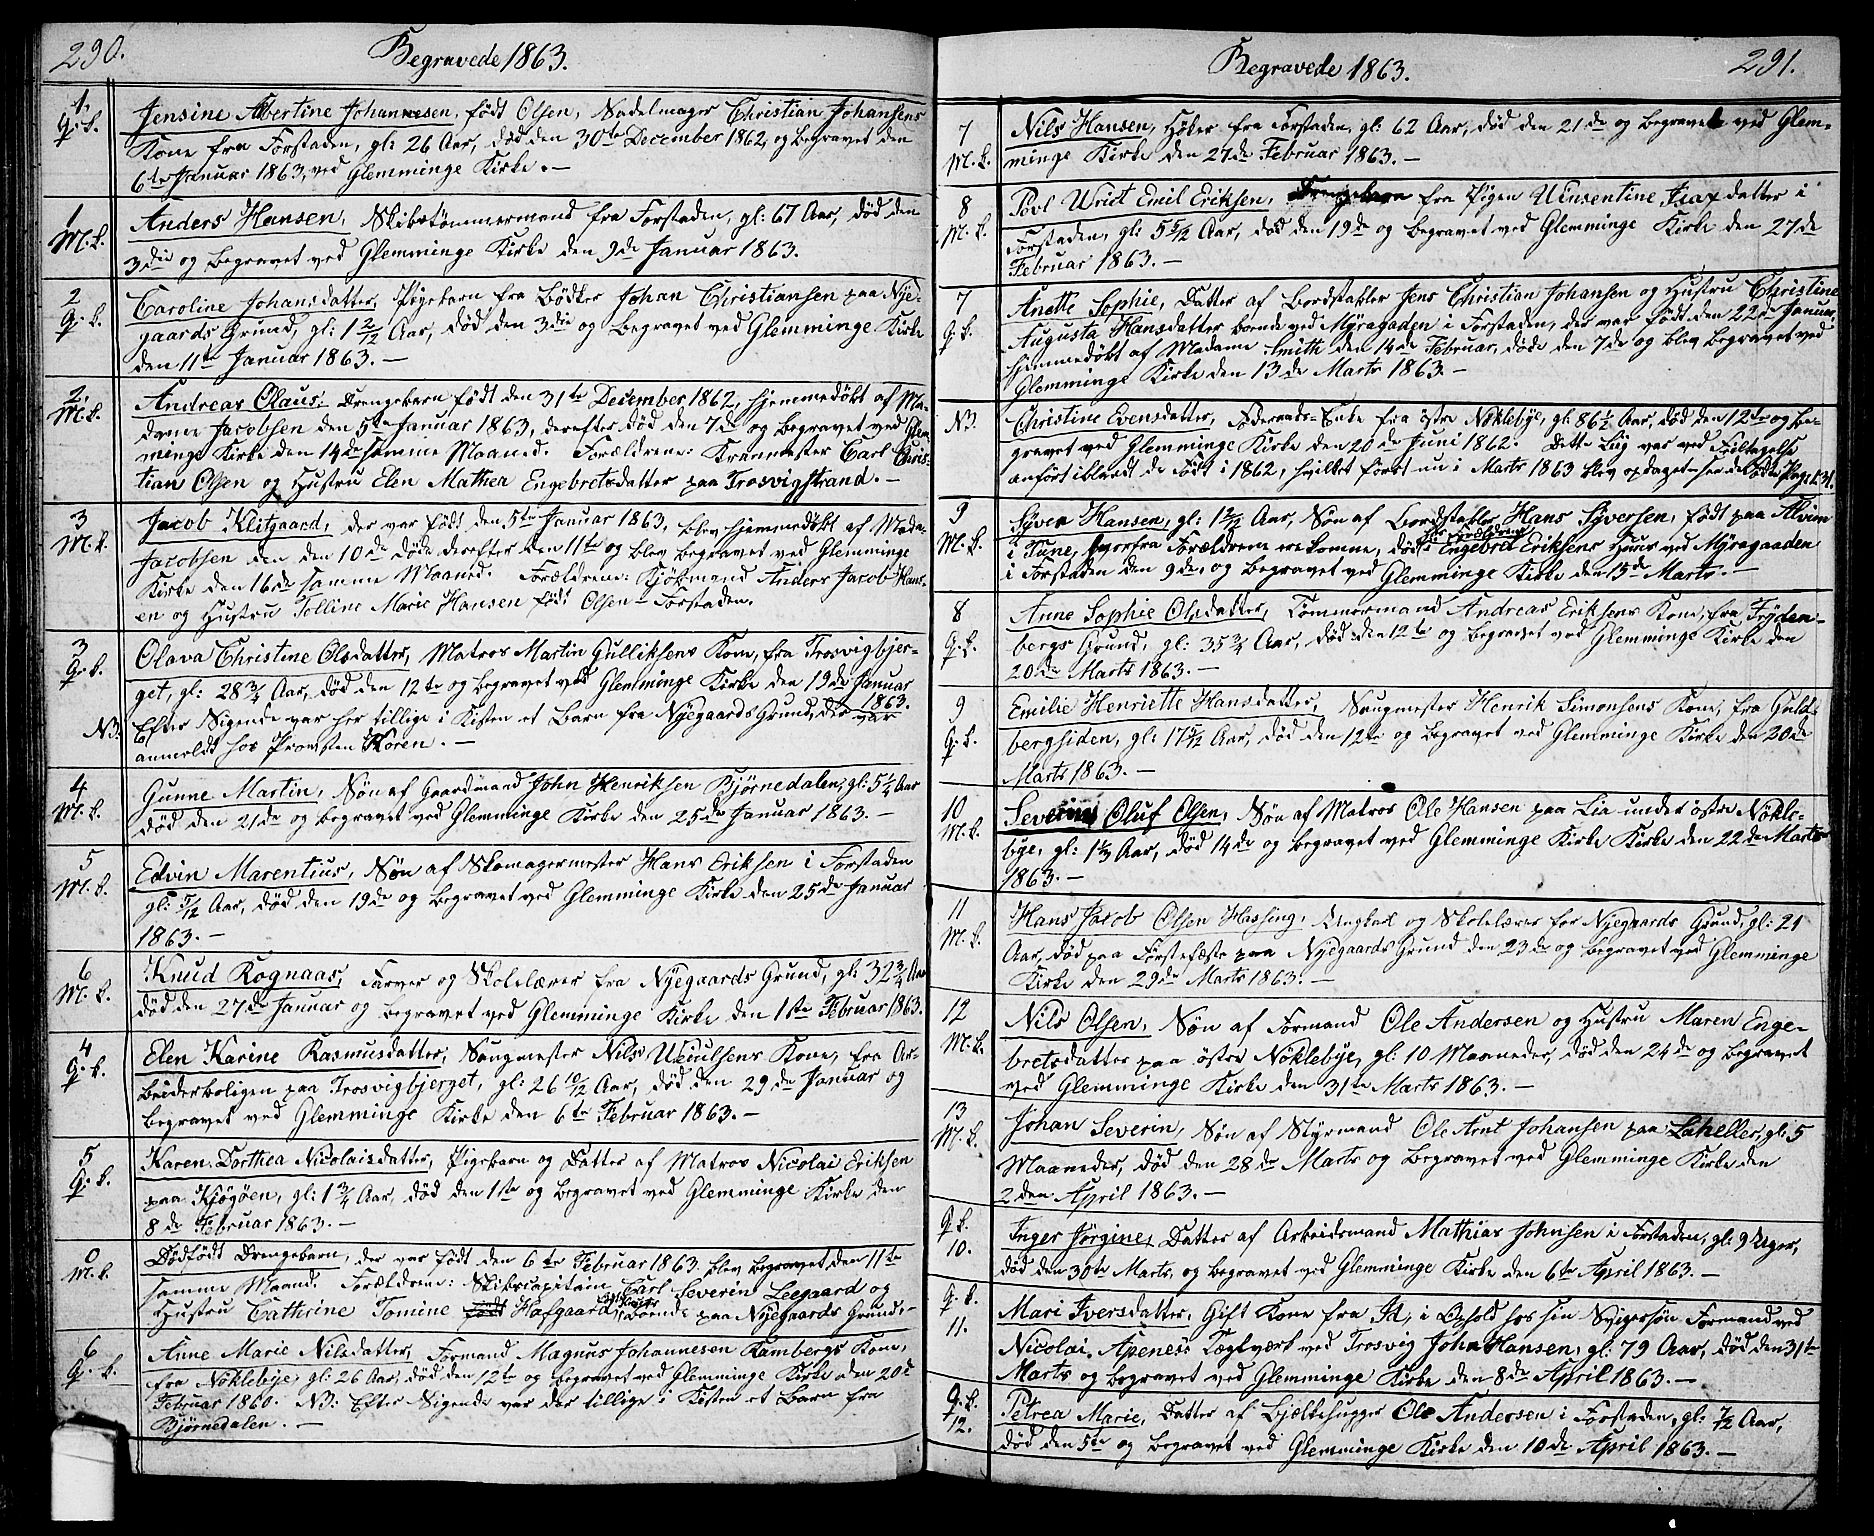 290.
Begravede 1863.
1.
Q. k.
Jensine Albertine Johannesen, født Olsen, Sadelmager Christian Johansens
Kone fra Forstaden, gl: 26 Aar, død den 30te December 1862, og begravet den
6te Januar 1863, ved Glemminge Kirke. —
1
M. k.
Anders Hansen, Skibstømmermand fra Forstaden, gl: 67 Aar, død den
3die og begravet ved Glemminge Kirke den 9de Januar 1863.
2
Q. k.
Caroline Johansdatter, Pigebarn fra Bødker Johan Christiansen paa Nye-
gaards Grund, gl: 1 2/12 Aar, død den 3die og begravet ved Glemminge Kirke
den 11te Januar 1863. —
2.
M. k.
Andreas Olaus, Drengebarn født den 31te December 1862, hjemmedøbt af Ma-
dame Jacobsen den 5te Januar 1863, derefter død den 7de og begravet ved Glem-
minge Kirke den 14de samme Maaned. Forældrene: Kranmester Carl Chris-
tian Olsen og Hustru Elen Mathea Engebretsdatter paa Trosvigstrand. —
3
M. k.
Jacob Klitgaard, der var født den 5te Januar 1863, blev hjemmedøbt af Mada-
Jacobsen den den 10de døde derefter den 11te og blev begravet ved Glemminge
Kirke den 16de samme Maaned. Forældrene: Kjøbmand Anders Jacob Hans-
en og Hustru Tolline Marie Hansen født Olsen — Forstaden.
3
Q. k.
Olava Christine Olsdatter, Matros Martin Gulliksens Kone, fra Trosvigbjer-
get, gl: 28 3/4 Aar, død den 12te og begravet ved Glemminge Kirke den 19de Januar
1863.
NB. Efter Sigende var her tillige i Kisten et Barn fra Nyegaards Grund, der var
anmeldt hos Provsten Koren. —
4
M. k.
Gunne Martin, Søn af Gaardmand John Henriksen Bjørnedalen, gl: 5 1/4 Aar
død den 21de og begravet ved Glemminge Kirke den 25de Januar 1863. —
5
M. k.
Edvin Marentius, Søn af Skomagermester Hans Eriksen i Forstaden
gl: 5/12 Aar, død den 19de og begravet ved Glemminge Kirke den 25de Januar
1863. —
6
M. k.
Knud Rognaas, Farver og Skolelærer fra Nyegaards Grund, gl: 32 3/4 Aar
død den 27de Januar og begravet ved Glemminge Kirke den 1ste Februar 1863.
4
Q. k.
Elen Karine Rasmusdatter, Saugmester Nils Ucuulsens Kone, fra Ar-
beiderboligen paa Trosvigbjerget, gl: 26 10/12 Aar, død den 29de Januar og
begravet ved Glemminge Kirke den 6te Februar 1863. —
5
Q. k.
Karen Dorthea Nicolaisdatter, Pigebarn og Datter af Matros Nicolai Eriksen
paa Kjøgøen, gl: 1 3/4 Aar, død den 1ste og begravet ved Glemminge Kirke den
8de Februar 1863. —
0
M. k.
Dødfødt Drengebarn, der var født den 6te Februar 1863 blev begravet den 11te
samme Maaned. Forældrene: Skibscapitain Carl Severin Leegaard og
Hustru Cathrine Tomine født Hafgaard, boende paa Nyegaards Grund. —
6
Q. k.
Anne Marie Nilsdatter, Formand Magnus Johannesen Kambergs Kone,
fra Nøklebye, gl: 26 Aar, død den 12te og begravet ved Glemminge Kirke den 20de
Februar 1860. NB: Efter Sigende var der tillige i Kisten et Barn fra
Bjørnedalen. —
Begravede 1863.
291.
7
M. k.
Nils Hansen, Høker fra Forstaden, gl: 62 Aar, død den 21de og begravet ved Glem-
minge Kirke den 27de Februar 1863. —
8
M. k.
Povl Uriot Emil Eriksen, Drengebarn fra Pigen Uinsentine Isaxdatter i
Forstaden, gl: 5 5/12 Aar, død den 19de og begravet ved Glemminge Kirke den 27de
Februar 1863. —
7
Q. k.
Anette Sophie, Datter af Bordstabler Jens Christian Johansen og Hustru Christine
Augusta Hansdatter boende ved Myragaden i Forstaden, der var født den 22de Januar,
hjemmedøbt af Madame Smith den 14de Februar, døde den 7de og blev begravet ved
Glemminge Kirke den 13de Marts 1863. —
NB.
Christine Evensdatter, Føderaads-Enke fra østre Nøklebye, gl: 86 1/2 Aar, død den 12te og be-
gravet ved Glemminge Kirke den 20de Juni 1862. Dette Liig var ved Feiltagelse
anført iblandt de Født i 1862, hvilket først nu i Marts 1863 blev opdaget
9
M. k.
Syver Hansen, gl: 1 2/12 Aar, Søn af Bordstabler Hans Syversen, født paa Alvim
i Tune, hvorfra Forældrene ere komne, død i Engebret Eriksens Huus ved Myragaaden
i Forstaden den 9de, og begravet ved Glemminge Kirke den 15de Marts. —
8
Q. k.
Anne Sophie Olsdatter, Tømmermand Andreas Eriksens Kone, fra Fryden-
bergs Grund, gl: 35 3/4 Aar, død den 12te og begravet ved Glemminge Kirke den
20de Marts 1863. —
9
Q. k.
Emilie Henriette Hansdatter, Saugmester Henrik Simonsens Kone, fra Guld-
bergsiden, gl: 17 5/12 Aar, død den 12te og begravet ved Glemminge Kirke den 20de
Marts 1863. —
10
M. k.
Severin Oluf Olsen, Søn af Matros Ole Hansen paa Lia under østre Nøkle-
bye, gl: 1 1/4 Aar, død 14de og begravet ved Glemminge Kirke Kirke den 22de Marts
1863. —
11
M. k.
Hans Jacob Olsen Hassing, Ungkarl og Skolelærer for Nyegaards Grund, gl: 21
Aar, død paa Førstefæste paa Nyegaards Grund den 23de og begravet ved Glemminge
Kirke den 29de Marts 1863. —
12
M. k.
Nils Olsen, Søn af Formand Ole Andersen og Hustru Maren Enge-
bretsdatter paa østre Nøklebye, gl: 10 Maaneder, død den 24de og begravet
ved Glemminge Kirke den 31te Marts 1863. —
13
M. k.
Johan Severin, Søn af Styrmand Ole Arnt Johansen paa Laheller, gl: 5
Maaneder, død den 28de Marts og begravet ved Glemminge Kirke den
2den April 1863. —
Q. k.
10.
Inger Jørgine, Datter af Arbeidsmand Mathias Johnsen i Forstaden, gl: 9 Uger,
død den 30te Marts, og begravet ved Glemminge Kirke den 6te April 1863. —
Q. k.
11.
Mari Iversdatter, Gift Kone fra Id, i Ophold hos sin Svigersøn Formand ved
Nicolai Apeness Tegl\værk ved Trosvig John Hansen, gl: 79 Aar, død den 31te
Marts og begravet ved Glemminge Kirke den 8de April 1863. —
Q. k.
12.
Petrea Marie, Datter af Bjelkehugger Ole Andersen i Forstaden, gl: 7/12 Aar,
død den 5te og begravet ved Glemminge Kirke den 10de April 1863. —